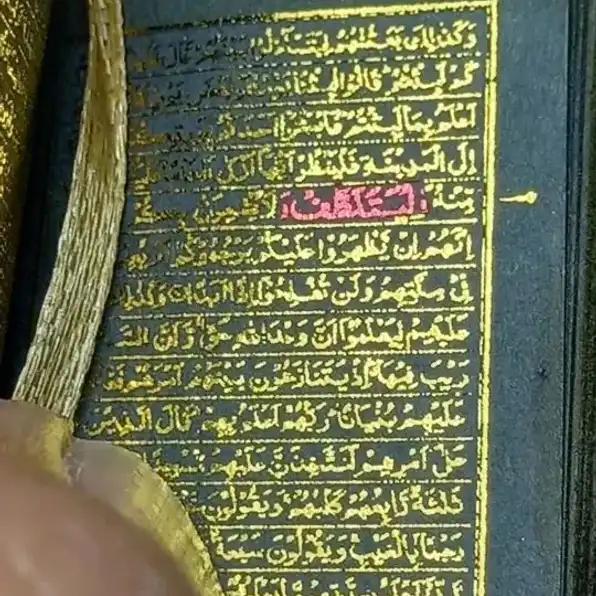 وَكَذٰلِكَ بَعَثْنٰهُمْ لِيَتَسَآءَلُوْا بَيْنَهُمْ قَالَ
كَمْ لَبِثْتُمْ قَالُوْا لَبِثْنَا
اَعْلَمُ بِمَا لَبِثْتُمْ فَابْعَثُوْٓا اَحَدَكُمْ
اِلَى الْمَدِيْنَةِ فَلْيَنْظُرْ اَيُّهَآ اَزْكٰى
مِّنْهُ وَلْيَتَلَطَّفْ وَلَا يُشْعِرَنَّ بِكُمْ
اِنَّهُمْ اِنْ يَّظْهَرُوْا عَلَيْكُمْ يَرْجُمُوْكُمْ اَوْ
فِيْ مِلَّتِهِمْ وَلَنْ تُفْلِحُوْٓا اِذًا اَبَدًا وَكَذٰلِكَ
عَلَيْهِمْ لِيَعْلَمُوْٓا اَنَّ وَعْدَ اللّٰهِ حَقٌّ وَّاَنَّ
رَيْبَ فِيْهَا اِذْ يَتَنَازَعُوْنَ بَيْنَهُمْ اَمْرَهُمْ
عَلَيْهِمْ بُنْيَانًا رَبُّهُمْ اَعْلَمُ بِهِمْ قَالَ الَّذِيْنَ
عَلٰٓى اَمْرِهِمْ لَنَتَّخِذَنَّ عَلَيْهِمْ
ثَلٰثَةٌ رَّابِعُهُمْ كَلْبُهُمْ وَيَقُوْلُوْنَ
رَجْمًا بِالْغَيْبِ وَيَقُوْلُوْنَ سَبْعَةٌ